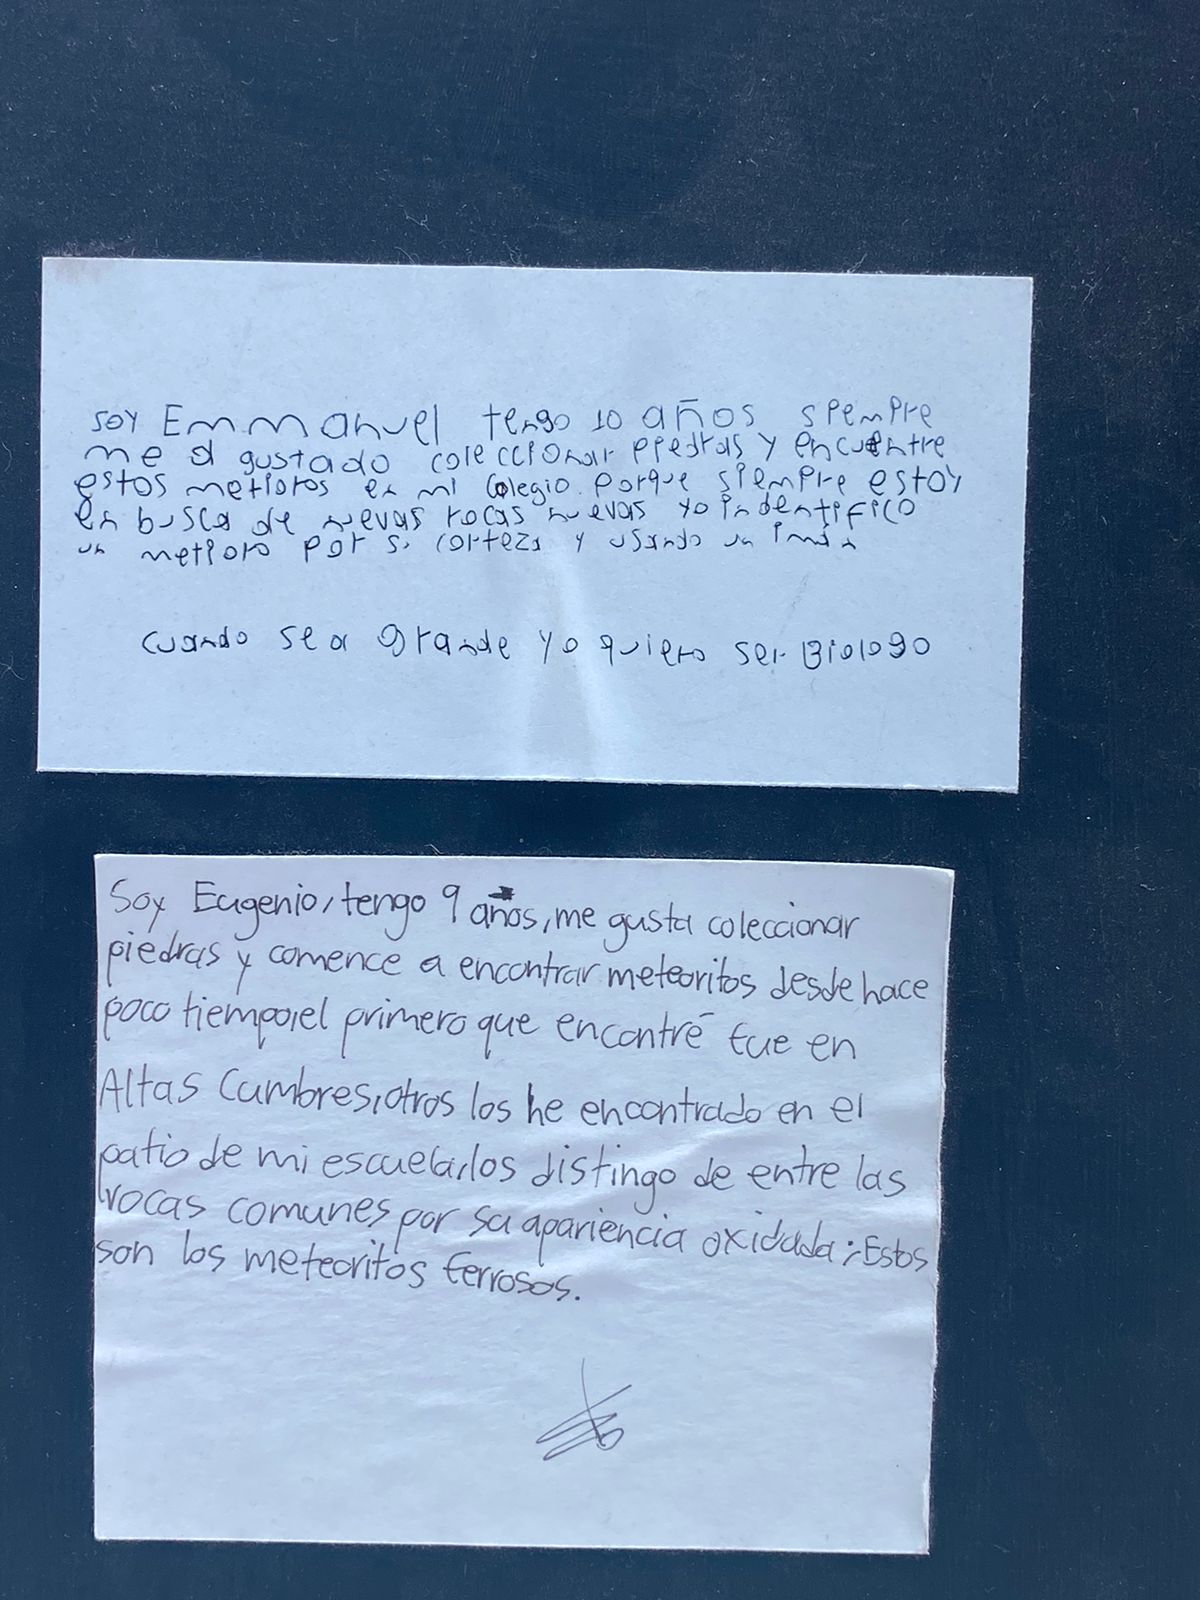 soy Emmanuel tengo 10 años siempre
me a gustado coleccionar piedras y encuentre
estos metioros en mi colegio. porque siempre estoy
en busca de nuevas rocas nuevas yo indentifico
un metioro por su corteza y usando un imán
cuando sea grande yo quiero ser Biologo
Soy Eugenio, tengo 9 años, me gusta coleccionar
piedras y comence a encontrar meteoritos desde hace
poco tiempo, el primero que encontré fue en
Altas Cumbres, otros los he encontrado en el
patio de mi escuela, los distingo de entre las
rocas comunes por su apariencia oxidada; Estos
son los meteoritos ferrosos.